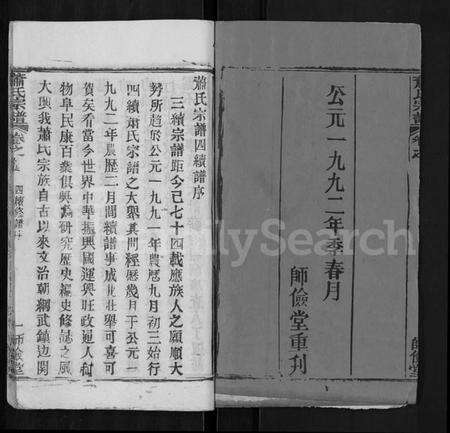 公元一九九二年季春月
師儉堂重刊
師儉堂
蕭氏宗譜四續譜序
三續宗譜距今已七十四載應族人之願順大
勢所趨於公元一九九一年農曆九月初三始行
四續蕭氏宗譜之大舉其間經歷幾月于公元一
九九二年農歷三月間續譜事成此壯舉可喜可
賀矣看當今世界中華振興國運興旺政通人和
物阜民康百業俱興為研究歷史編史修誌之風
大興我蕭氏宗族自古以來文治朝綱武鎮边関
蕭氏宗譜
卷之首
四續修譜序
一
師儉堂
FamilySearch